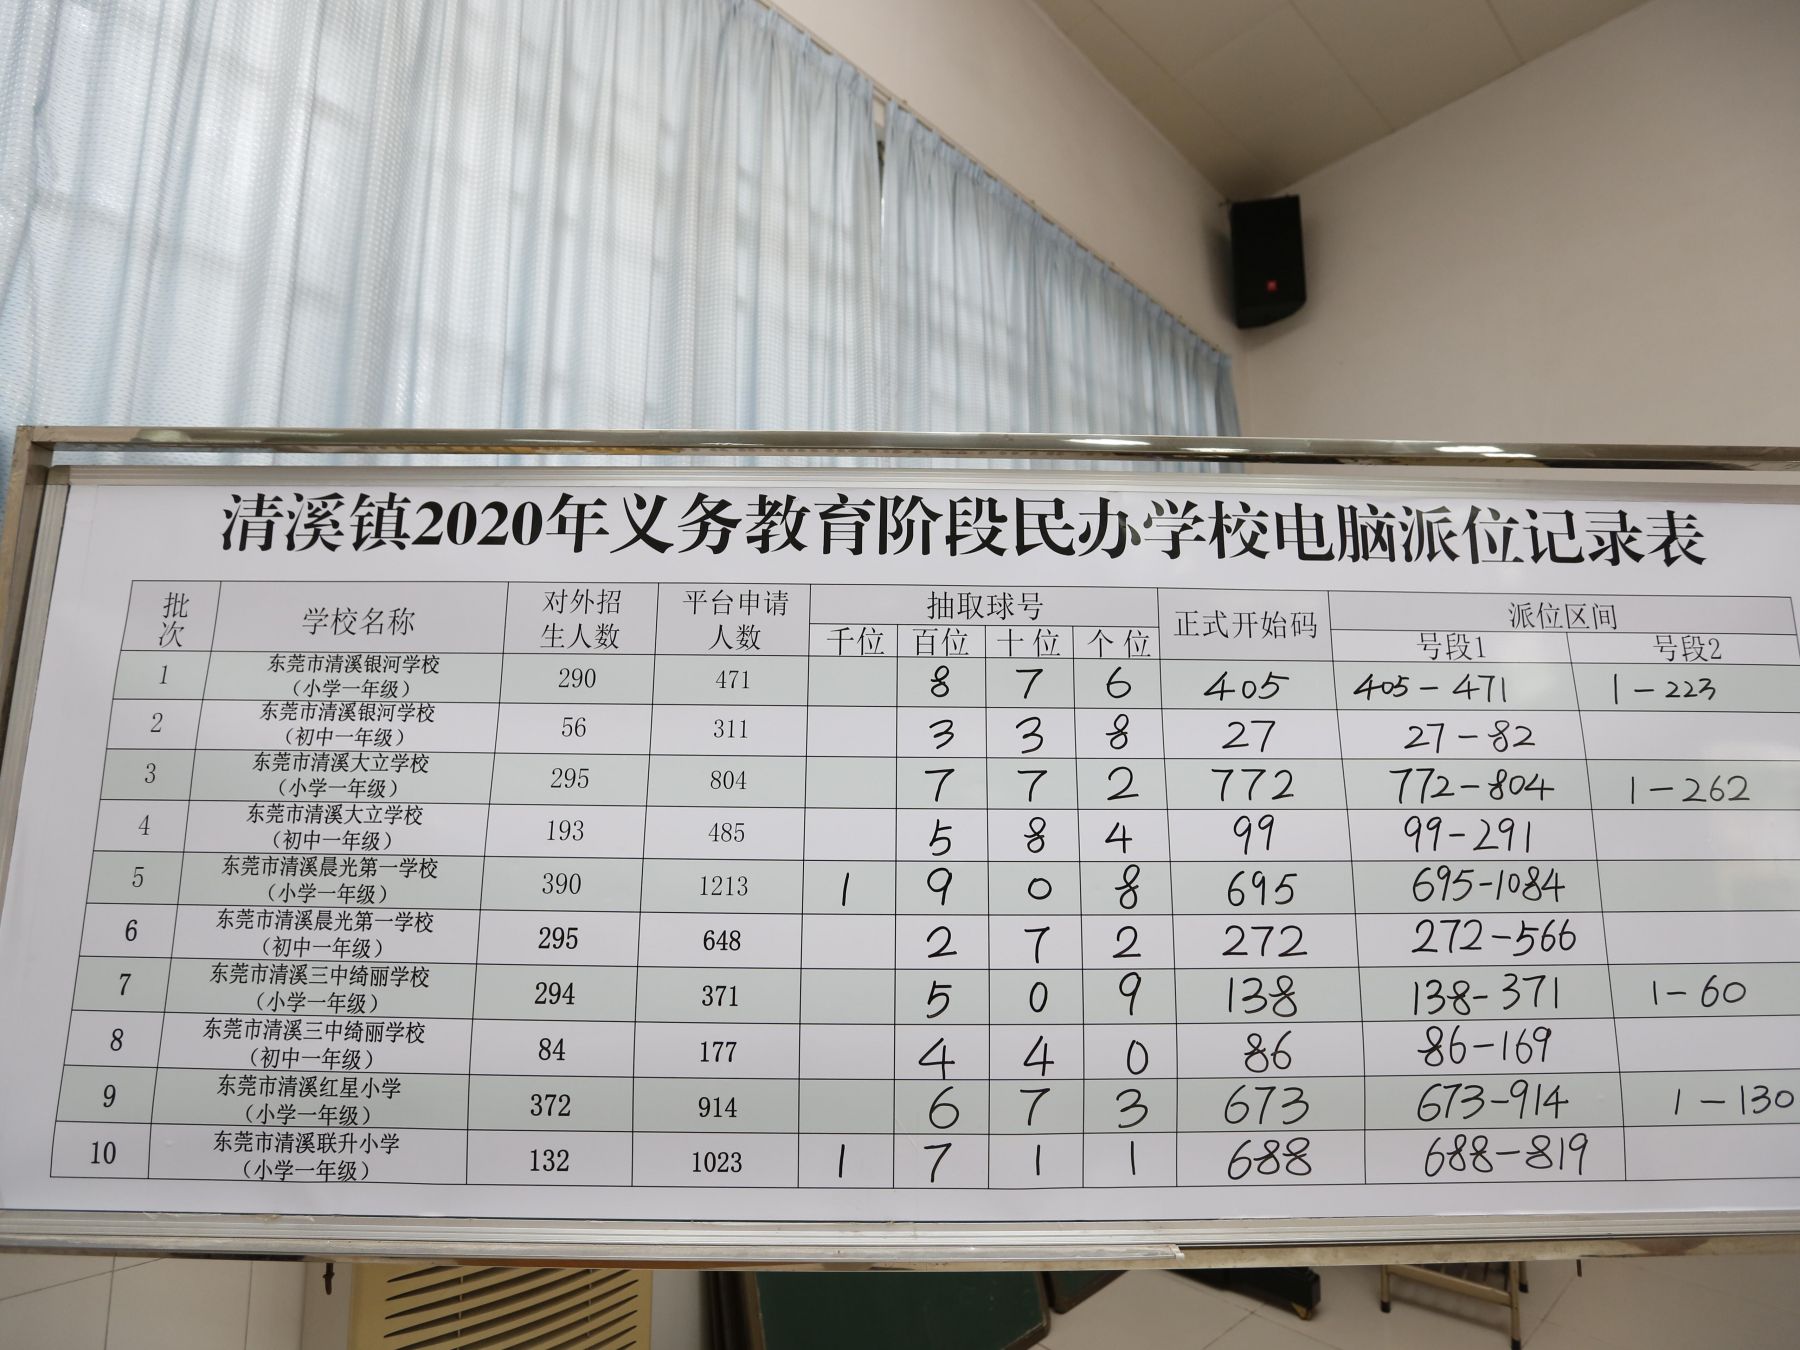 清溪镇2020年义务教育阶段民办学校电脑派位记录表
批次 学校名称 对外招生人数 平台申请人数 抽取球号 正式开始码 派位区间
千位 百位 十位 个位 号段1 号段2
1 东莞市清溪银河学校（小学一年级） 290 471 8 7 6 405 405-471 1-223
2 东莞市清溪银河学校（初中一年级） 56 311 3 3 8 27 27-82
3 东莞市清溪大立学校（小学一年级） 295 804 7 7 2 772 772-804 1-262
4 东莞市清溪大立学校（初中一年级） 193 485 5 8 4 99 99-291
5 东莞市清溪晨光第一学校（小学一年级） 390 1213 1 9 0 8 695 695-1084
6 东莞市清溪晨光第一学校（初中一年级） 295 648 2 7 2 272 272-566
7 东莞市清溪三中绮丽学校（小学一年级） 294 371 5 0 9 138 138-371 1-60
8 东莞市清溪三中绮丽学校（初中一年级） 84 177 4 4 0 86 86-169
9 东莞市清溪红星小学（小学一年级） 372 914 6 7 3 673 673-914 1-130
10 东莞市清溪联升小学（小学一年级） 132 1023 1 7 1 1 688 688-819